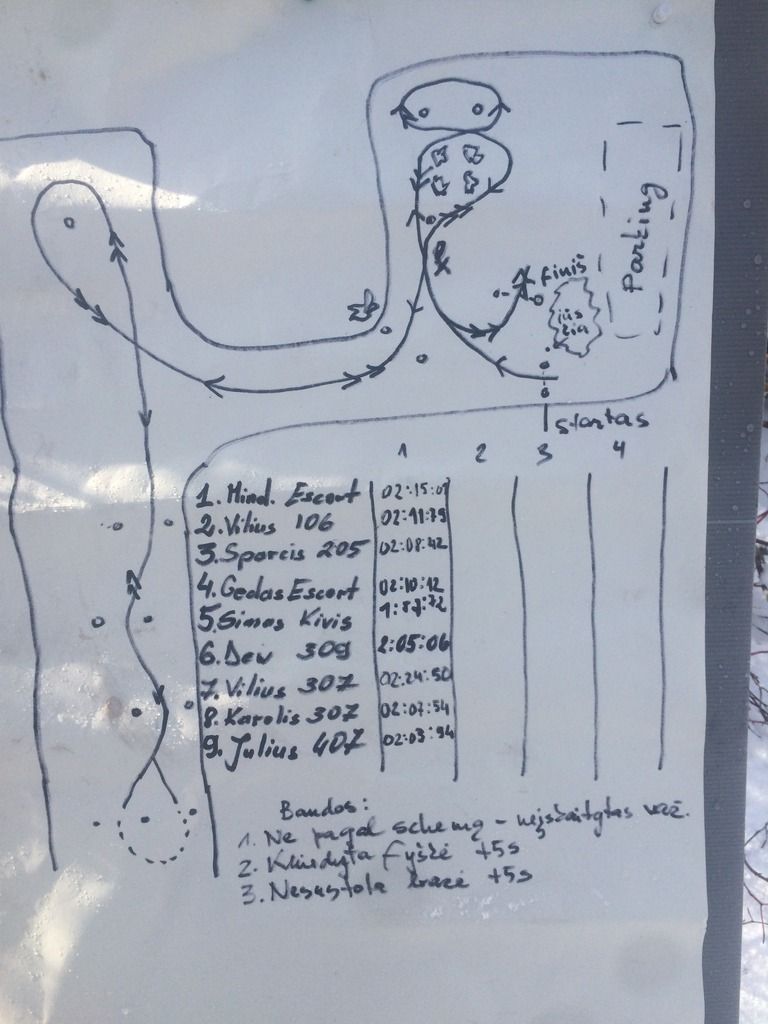 Parking
finiš
startas
1 2 3 4
1. Mind. Escort 02:15:01
2. Vilius 106 02:11:79
3. Sparcis 205 02:08:42
4. Gedas Escort 02:10:12
5. Simas Kivis 1:57:72
6. Dei 309 2:05:06
7. Vilius 307 02:24:50
8. Karolis 307 02:07:54
9. Julius 407 02:03:94
Baudos:
1. Ne pagal schemą -
2. Kliudyta +5s
3. Nesustota +5s